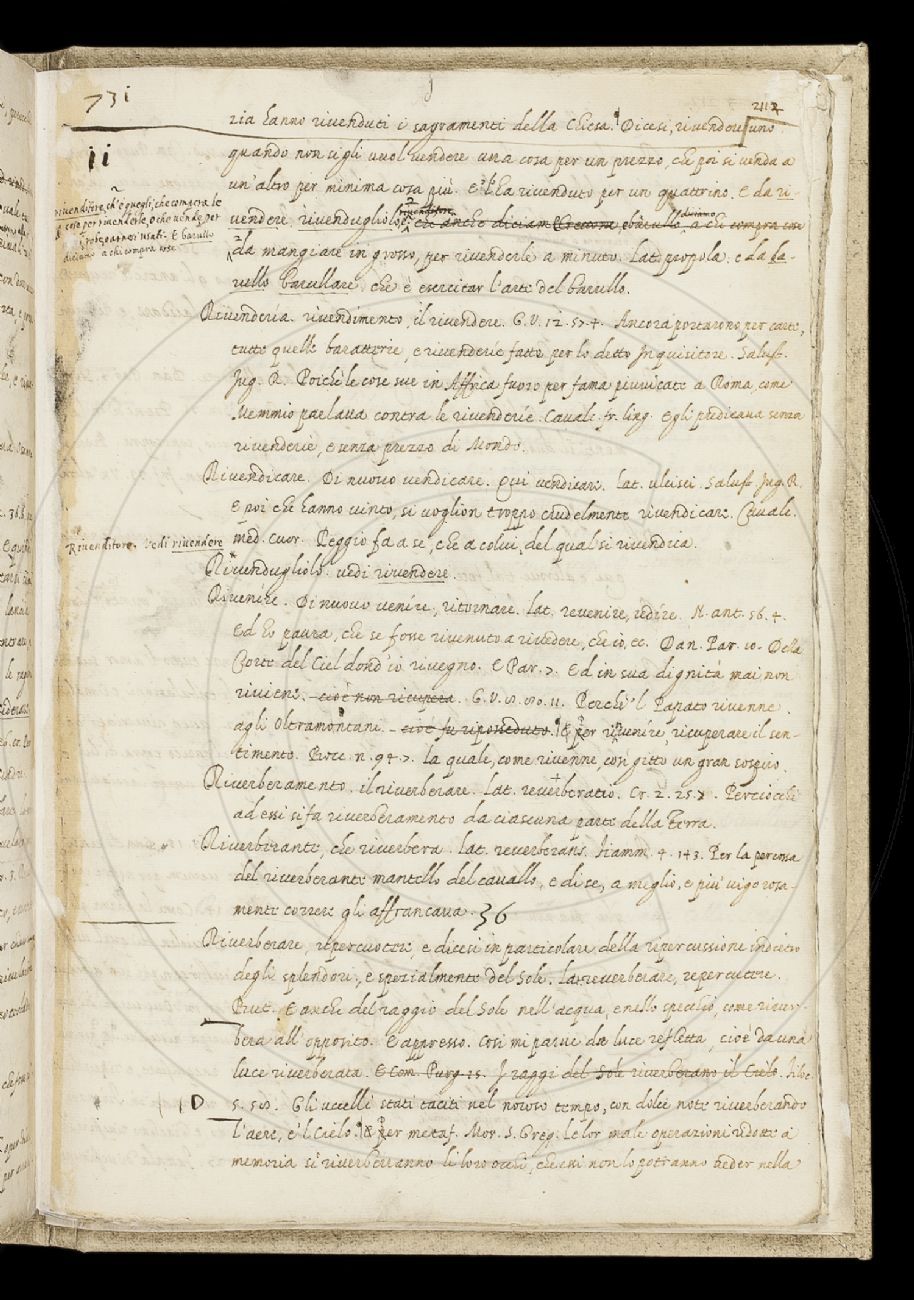 731
2112
ii
ria hanno rivenduti i sagramenti della Chiesa. Dicesi, rivendere uno
quando non sigli vuol vendere una cosa per un prezzo, che poi si venda a
un'altro per minima cosa più. E l'ha rivenduto per un quattrino. E da ri-
vendere rivendugliolo, rivenditore che anche diciam Treccone e barullo diciamo a chi compra cose
da mangiare in grosso, per rivenderle a minuto. Lat. propola. e da ba-
rullo barullare. che è esercitar l'arte del barullo.
rivenditore, ch'è quegli, che compra le
cose per rivenderle, o che vende per
prezzo arnesi usati. E barullo
diciamo a chi compra cose
Rivenderia. rivendimento, il rivendere. G.V. 12. 57. 4. Ancora portarono per carte,
tutte quelle baratterie, e rivenderie fatte per lo detto Inquisitore. Salust.
Jug. R. Poichè le cose sue in Affrica furo per fama piuvicate a Roma, come
Memmio parlava contra le rivenderie. Cavalc. fr. ling. Egli predicava senza
rivenderie, e senza prezzo di Mondo.
Rivendicare. Di nuovo vendicare. Qui vendicare. lat. ulcisci. Salust. Jug. R.
E poi che hanno vinto, si voglion troppo crudelmente rivendicare. Cavalc.
med. cuor. Peggio fa a se, che a colui, del qual si rivendica.
Rivenditore. vedi rivendere
Rivendugliolo. vedi rivendere.
Rivenire. Di nuovo venire, ritornare. lat. revenire, redire. N. ant. 56. 4.
Ed ho paura, che se fosse rivenuto a rivedere, che io, ec. Dan. Par. 10. Della
Corte del Ciel dond'io rivegno. E Par. 7. Ed in sua dignità mai non
riviene. cioè non ricupera. G.V. 8. 80. 11. Perchè 'l Papato rivenne
agli Oltramontani. cioè fu riposseduto. & per rivenire, ricuperare il sen-
timento. Bocc. n. 94. 7. La quale, come rivenne, così gitto un gran sospiro.
Riverberamento. il riverberare. Lat. reverberatio. Cr. 2. 25. 7. Perciocchè
ad essi si fa riverberamento da ciascuna parte della Terra.
Riverberante, che riverbera. lat. reverberans. Fiamm. 4. 143. Per la percossa
del riverberante mantello del cavallo, e di se, a meglio, e più vigorosa-
mente correre gli affrancava. 36
Riverberare, ripercuotere, e dicesi in particolare della ripercussione indietro
degli splendori, e spezialmente del Sole. Lat. reverberare, repercutere.
But. E anche del raggio del Sole nell'acqua, e nello specchio, come river-
bera all'opposito. E appresso. Così mi parve da luce refletta, cioè da una
luce riverberata. E Com. Purg. 15. I raggi del Sole riverberano il Cielo. Filoc.
D
5. 58. Gli uccelli stati taciti nel noioso tempo, con dolci note riverberando
l'aere, e'l Cielo. & per metaf. Mor. S. Greg. Le lor male operazioni ridotte a
memoria si riverberanno li loro occhi, che essi non lo potranno veder nella